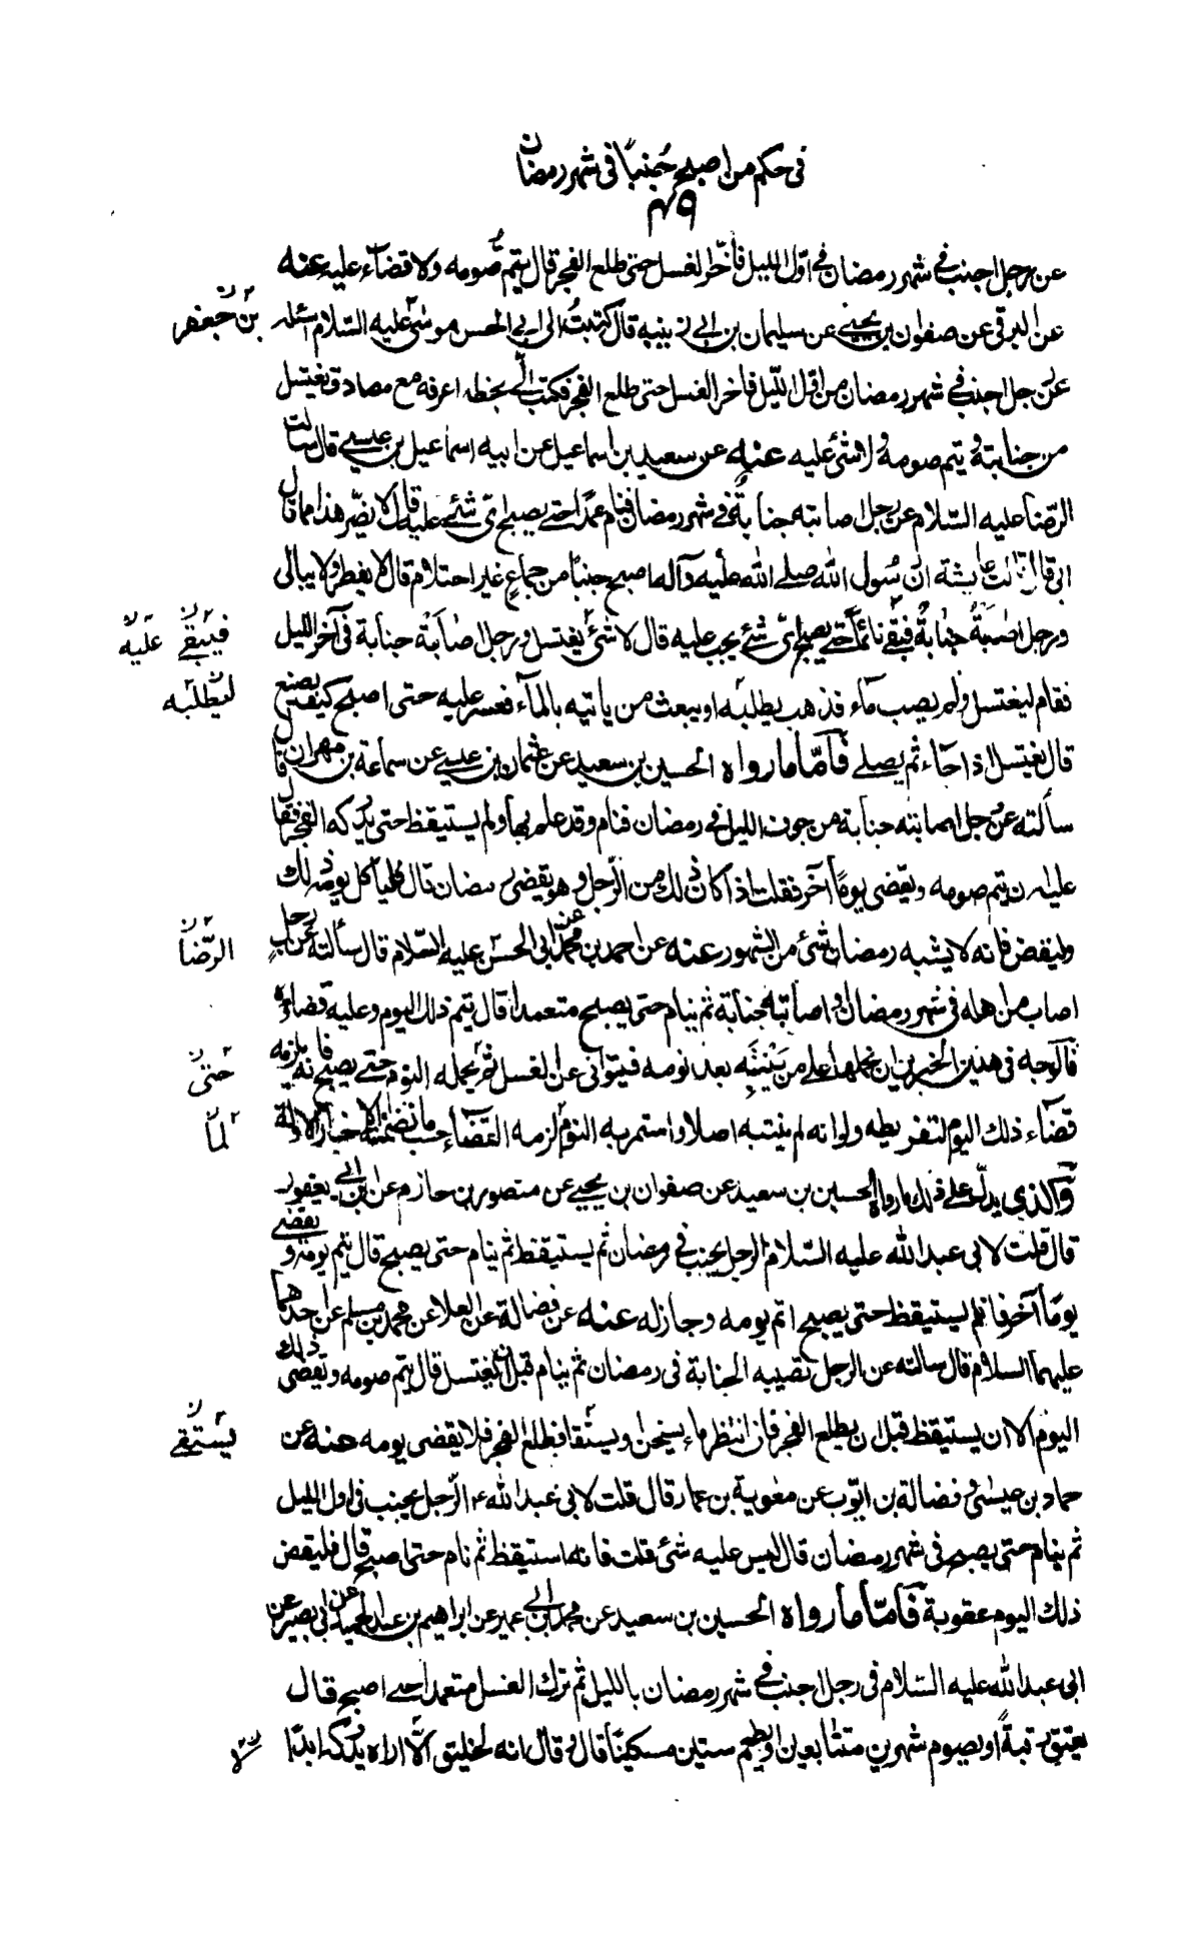 فی حکم من اصبح جُنباً فی شهر رمضان
٤٩
عن رجل اجنب فی شهر رمضان فی اوّل اللیل فأخّر الغسل حتی طلع الفجر قال یتم صُومه ولا قضآء علیه عنه
عن البرقی عن صفوان بن یحیی عن سلیمان بن ابی زینبه قال کتبتُ الی ابی الحسن موسی علیه السّلام اسئله
بن جعفر
عن رجل اجنب فی شهر رمضان من اوّل اللّیل فاخر الغسل حتی طلع الفجر فکتب الیّ بخطه اعرفه مع مصادق یغتسل
من جنابته و یتم صومه ولا شئ علیه عنه عن سعید بن اسماعیل عن ابیه اسماعیل بن عیسی قال سالت
الرّضا علیه السّلام عن رجل اصابته جنابةٌ فی شهر رمضان فنام عمداً حتی یصبح ایّ شئ علیه قال لا یضرّ هذا مما قال
ابی قال قالت عایشة ان رسول الله صلی الله علیه وآله اصبح جنباً من جماعٍ غیر احتلام قال لا یفطر ولا یبالی
ورجل اصابته جنابةٌ فبقی نائماً حتی یصبح ایّ شئ یجب علیه قال لا شئ یغتسل ورجل اصابته جنابة فی آخر اللیل
فیبقی علیه
فقام لیغتسل ولم یصب مآء فذهب یطلبه او یبعث من یاتیه بالمآء فعسر علیه حتی اصبح کیف یصنع
لیطلبه
قال یغتسل اذا جآء ثم یصلی فأمّا ما رواه الحسین بن سعید عن عثمان بن عیسی عن سماعة بن مهران قال
سألته عن رجل اصابته جنابة من جوف اللیل فی رمضان فنام وقد علم بها ولم یستیقظ حتی یدرکه الفجر فقال
علیه ان یتم صومه و یقضی یوماً آخر فقلت اذا کان ذلک من الرّجل وهو یقضی رمضان قال فلیأکل یومه ذلک
ولیقض فانه لا یشبه رمضان شئ من الشهور عنه عن احمد بن محمد عن ابی الحسن علیه السّلام قال سألته عن رجل
الرّضا
اصاب من اهله فی شهر رمضان او اصابته جنابة ثم ینام حتی یصبح متعمداً قال یتم ذلک الیوم وعلیه قضاءه
فالوجه فی هذین الخبرین ان نحملها علی من ینتبه بعد نومه فیتوانی عن الغسل ثم یحمله النوم حتی یصبح فانه یلزمه
حتی
قضآء ذلک الیوم لتفریطه ولو انه لم ینتبه اصلا واستمر به النوم لزمه القضآء حسب ما تضمنته الاخبار الاولة
لما
والذی یدلّ علی ذلک ما رواه الحسین بن سعید عن صفوان بن یحیی عن منصور بن حازم عن ابن ابی یعفور
قال قلت لابی عبد الله علیه السّلام الرجل یجنب فی رمضان ثم یستیقظ ثم ینام حتی یصبح قال یتم یومه ویقضی
یوماً آخر فان لم یستیقظ حتی یصبح اتم یومه وجاز له عنه عن فضالة عن العلا عن محمد بن مسلم عن احدهما
علیهما السلام قال سالته عن الرجل تصیبه الجنابة فی رمضان ثم ینام قبل ان یغتسل قال یتم صومه و یقضی ذلک
الیوم الا ان یستیقظ قبل ان یطلع الفجر فان انتظر ماء یسخن او یستقا فطلع الفجر فلا یقضی یومه عنه عن
یستقی
حماد بن عیسی و فضالة بن ایّوب عن معویة بن عمار قال قلت لابی عبد الله ع الرّجل یجنب فی اول اللیل
ثم ینام حتی یصبح فی شهر رمضان قال لیس علیه شئ قلت فانه استیقظ ثم نام حتی اصبح قال فلیقض
ذلک الیوم عقوبة فأمّا ما رواه الحسین بن سعید عن محمد بن ابی عمیر عن ابراهیم بن عبد الحمید عن ابی بصیر عن
ابی عبد الله علیه السّلام فی رجل اجنب فی شهر رمضان باللیل ثم ترک الغسل متعمدا حتی اصبح قال
یعتق رقبةً او یصوم شهرین متتابعین او یطعم ستین مسکیناً قال و قال انه لخلیق الّا اراه یدرکه ابداً